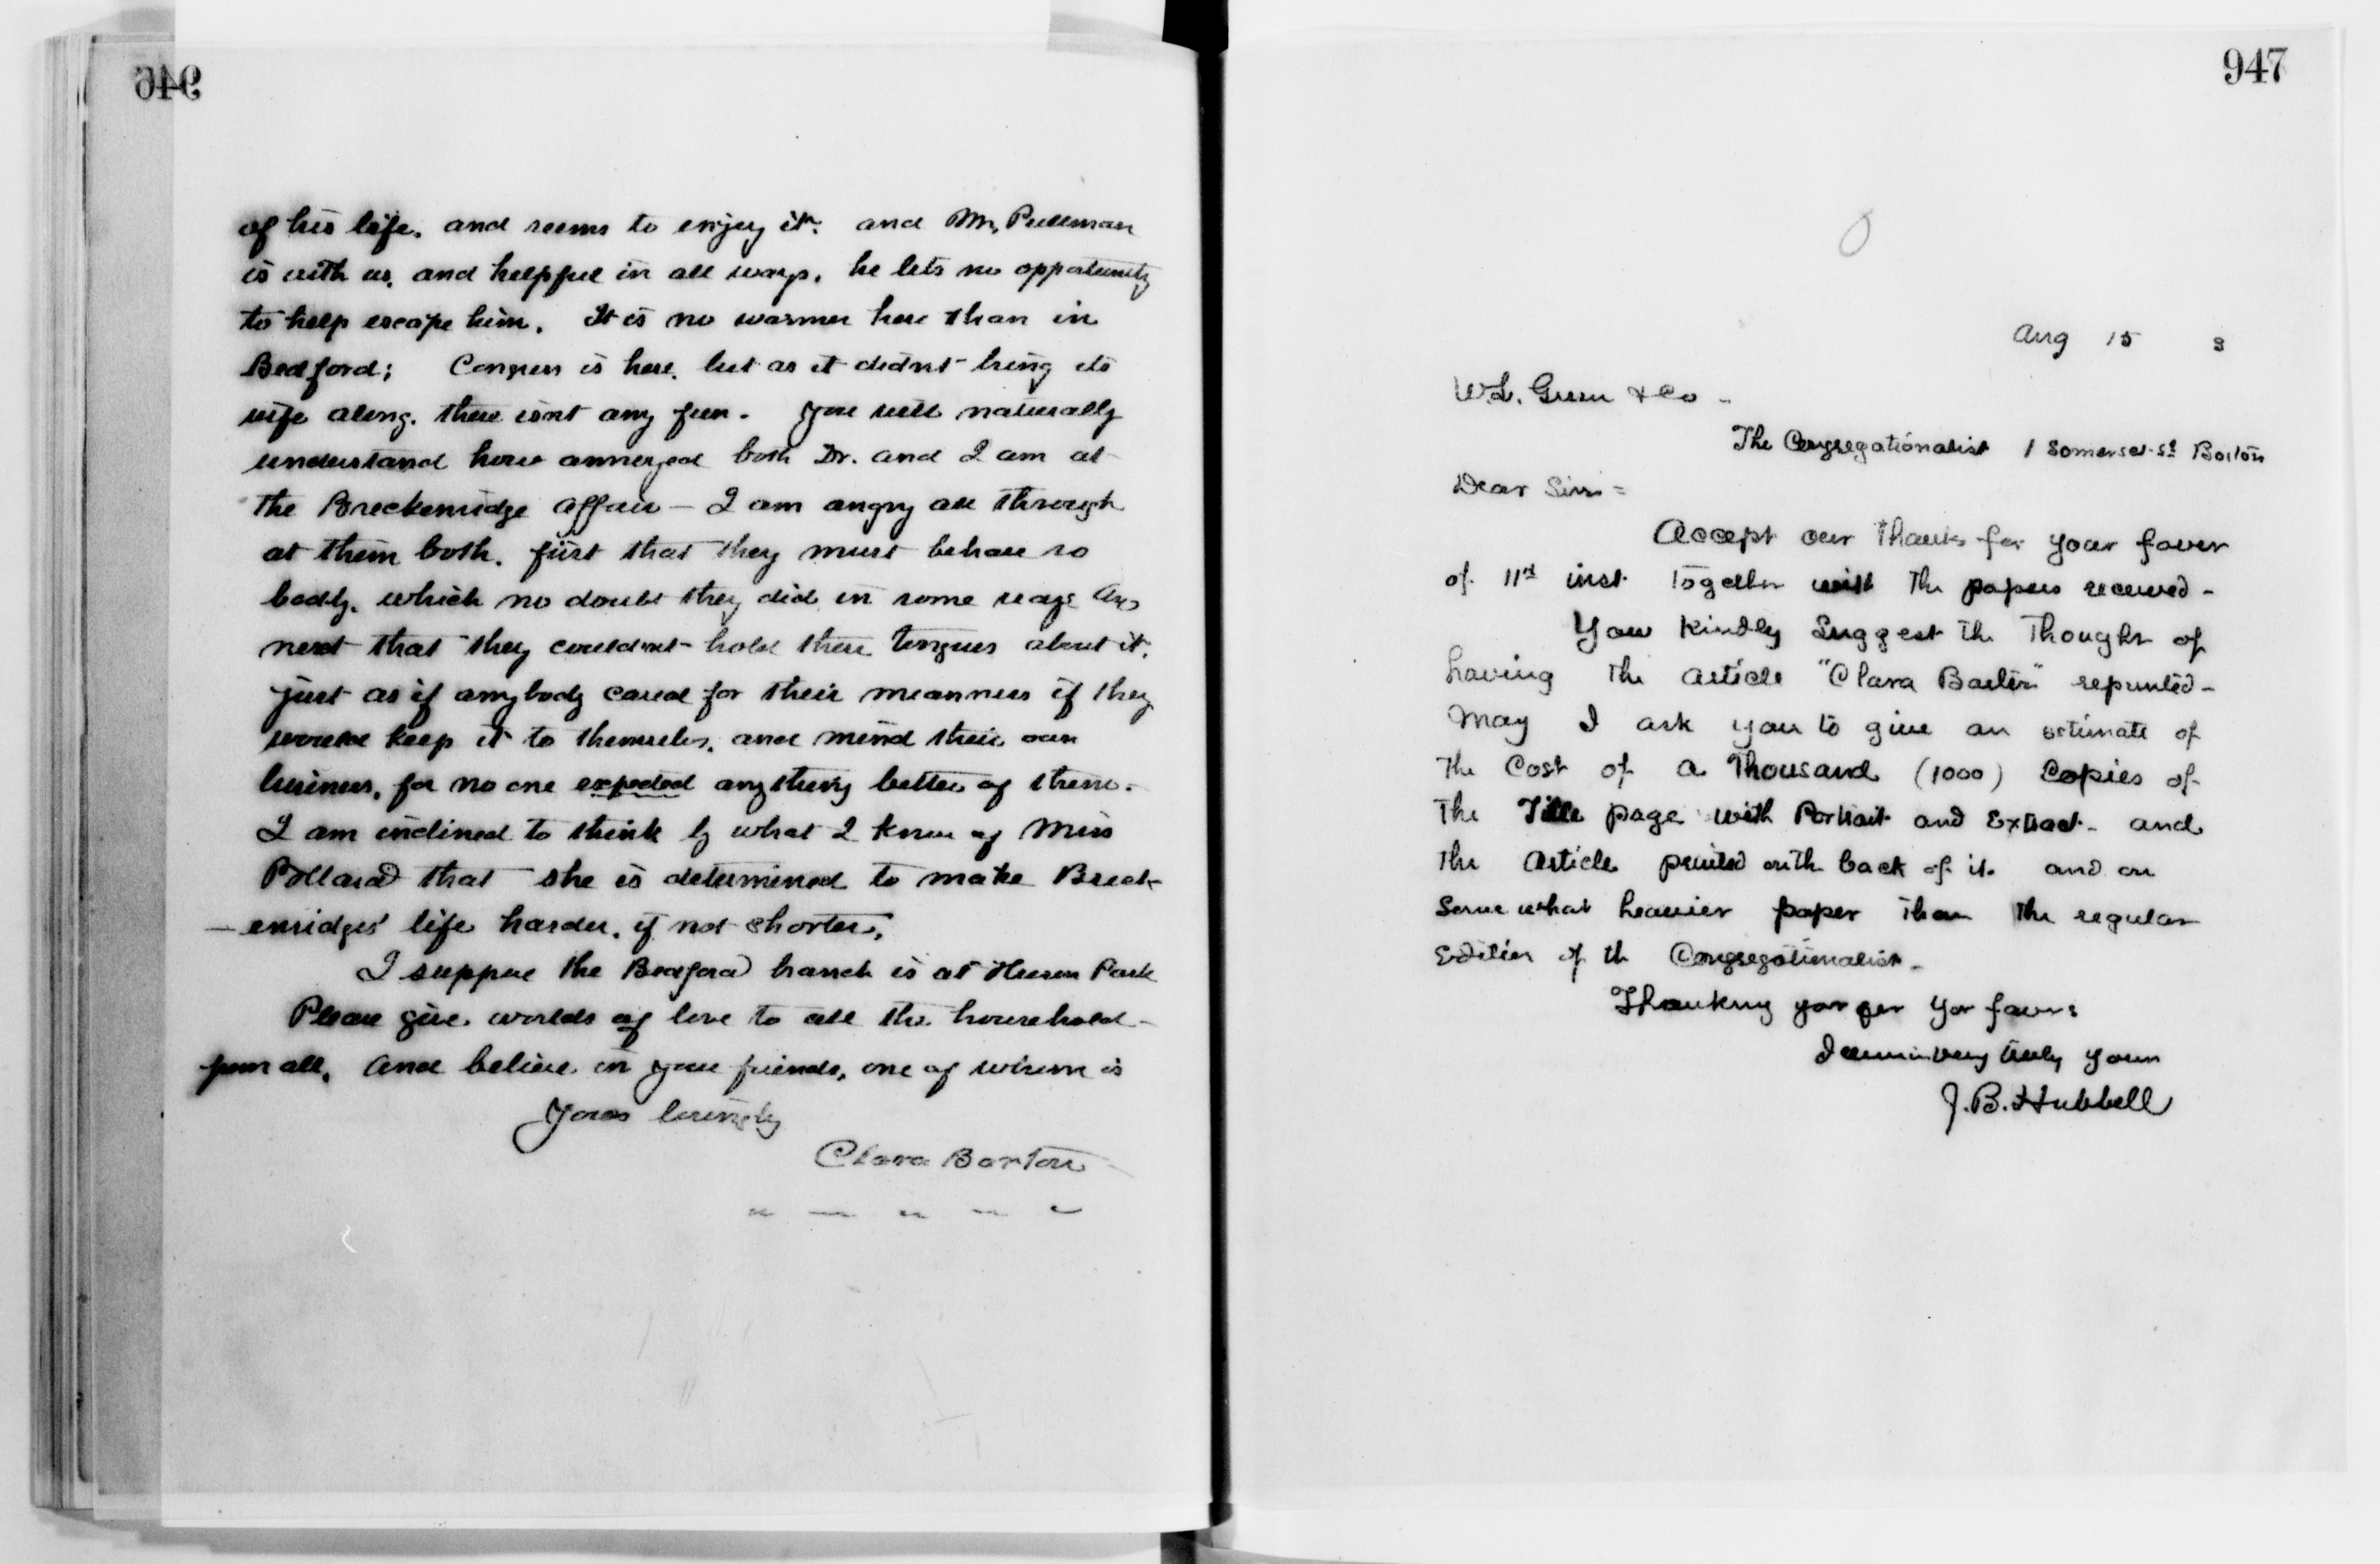 946
of his life. and seems to enjoy it. and Mr. Pullman
is with us, and helpful in all ways. he lets no opportunity
to help escape him. It is no warmer here than in
Bedford; Congress is here. but as it didnt bring its
wife along. there isnt any fun. You will naturally
understand how annoyed both Dr. and I am at
the Breckenridge affair – I am angry all through
at them both. first that they must behave so
badly. which no doubt they did in some way, and
next that they couldnt hold their tongues about it.
just as if anybody cared for their meanness if they
would keep it to themselves, and mind their own
business, for no one expected anything better of them.
I am inclined to think by what I know of Miss
Pollard that she is determined to make Breck-
-enridges' life harder, if not shorter,
I suppose the Bedford branch is at Huron Park
Please give worlds of love to all the household –
from all. And believe in your friends, one of whom is
Yours lovingly
Clara Barton
947
Aug 15 3
W.L. Green & Co –
The Congregationalist 1 Somerset St Boston
Dear Sirs =
Accept our thanks for your favor
of 11th inst together with the papers received –
You kindly suggest the thought of
having the article "Clara Barton" reprinted –
May I ask you to give an estimate of
the cost of a Thousand (1000) Copies of
the Title page with Portrait and Extract – and
the Article printed on the back of it. and on
some what heavier paper than the regular
Edition of th Congregationalist –
Thanking you for yor favors
I remain very truly yours
J. B. Hubbell